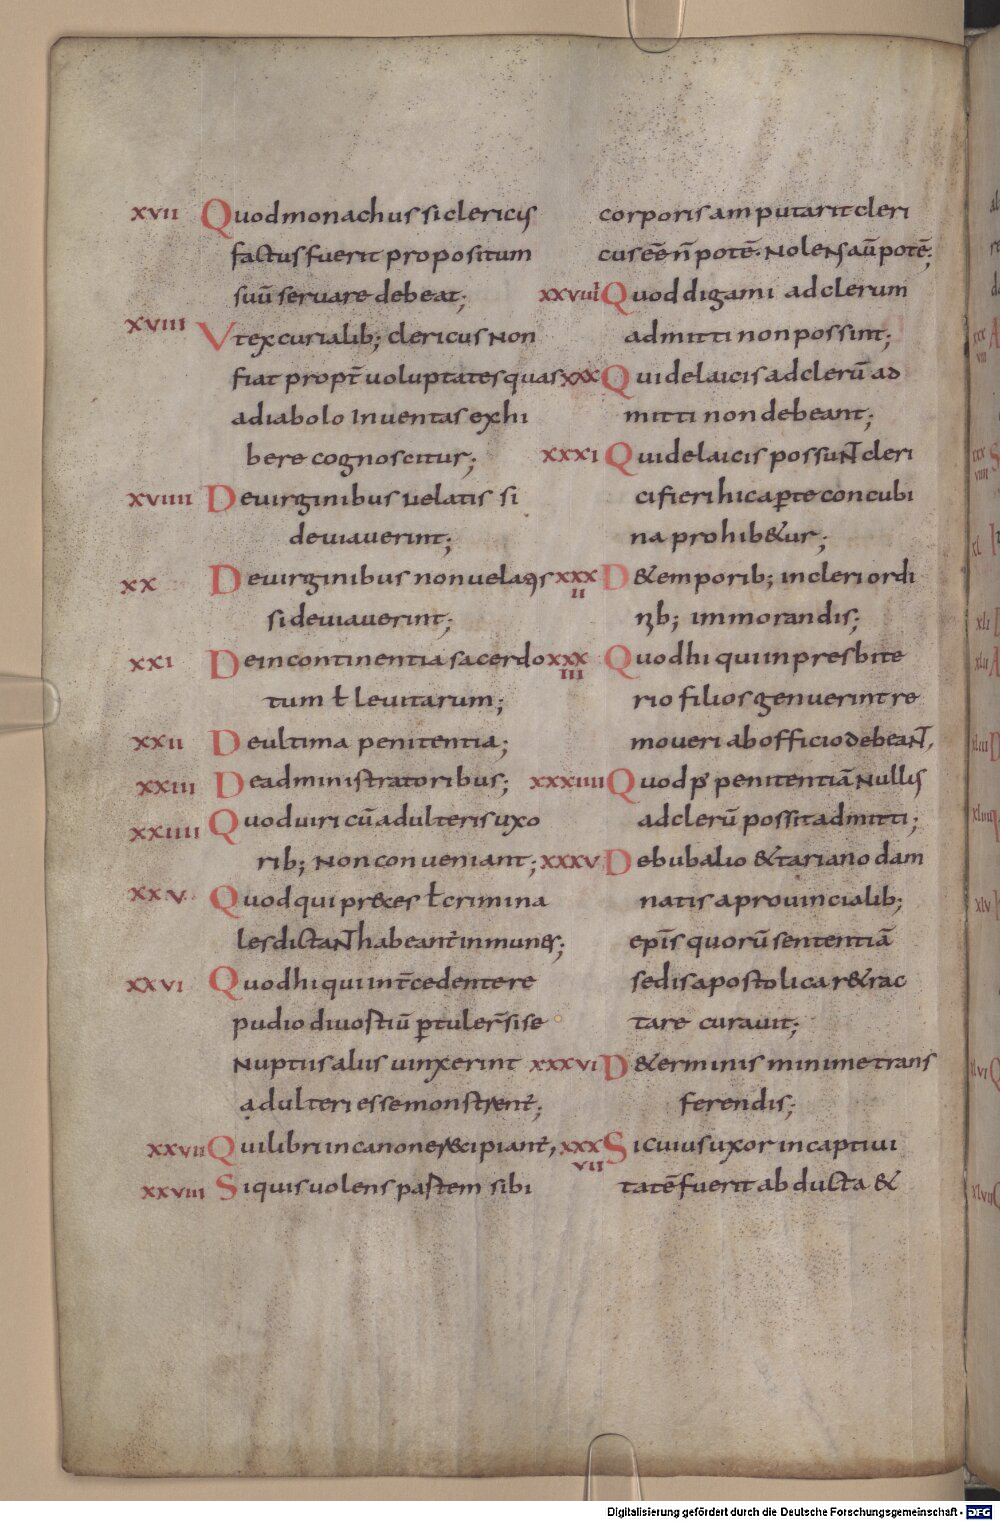 xvii Quod monachus si clericus
factus fuerit propositum
suū seruare debeat;
xviii Vt ex curialib; clericus non
fiat propt̄ uoluptates quas
a diabolo Inuentas exhi
bere cognoscitur;
xviiii De uirginibus uelatis si
deuiauerint;
xx De uirginibus non uelatis
si deuiauerint;
xxi De incontinentia sacerdo
tum ł leuitarum;
xxii De ultima penitentia;
xxiii De administratoribus;
xxiiii Quod uiri cū adulteris uxo
rib; non conueniant;
xxv Quod qui preces ł crimina
les dictant habeant̄ inmunes;
xxvi Quod hi qui int̄cedente re
pudio diuortiū ꝑtuler̄ si se
nuptiis aliis uinxerint
adulteri esse monstrent̄;
xxvii Qui libri in canone recipiant̄,
xxviii Si quis uolens partem sibi
corporis amputarit cleri
cus eē n̄ potē. Nolens aū potē;
xxviiii Quod digami ad clerum
admitti non possint;
xxx Qui de laicis ad clerū ad
mitti non debeant;
xxxi Qui de laicis possunt cleri
ci fieri hic aꝑte concubi
na prohib&ur;
xxxii D& emporib; in cleri ordi
nib; immorandis;
xxxiii Quod hi qui in presbite
rio filios genuerint re
moueri ab officio debeant,
xxxiiii Quod p' penitentiā nullus
ad clerū possit admitti;
xxxv De bubalio & tariano dam
natis a prouincialib;
epīs quorū sententiā
sedis apostolica r&rac
tare curauit;
xxxvi D& erminis minime trans
ferendis;
xxxvii Si cuius uxor in captiui
tatē fuerit abducta &